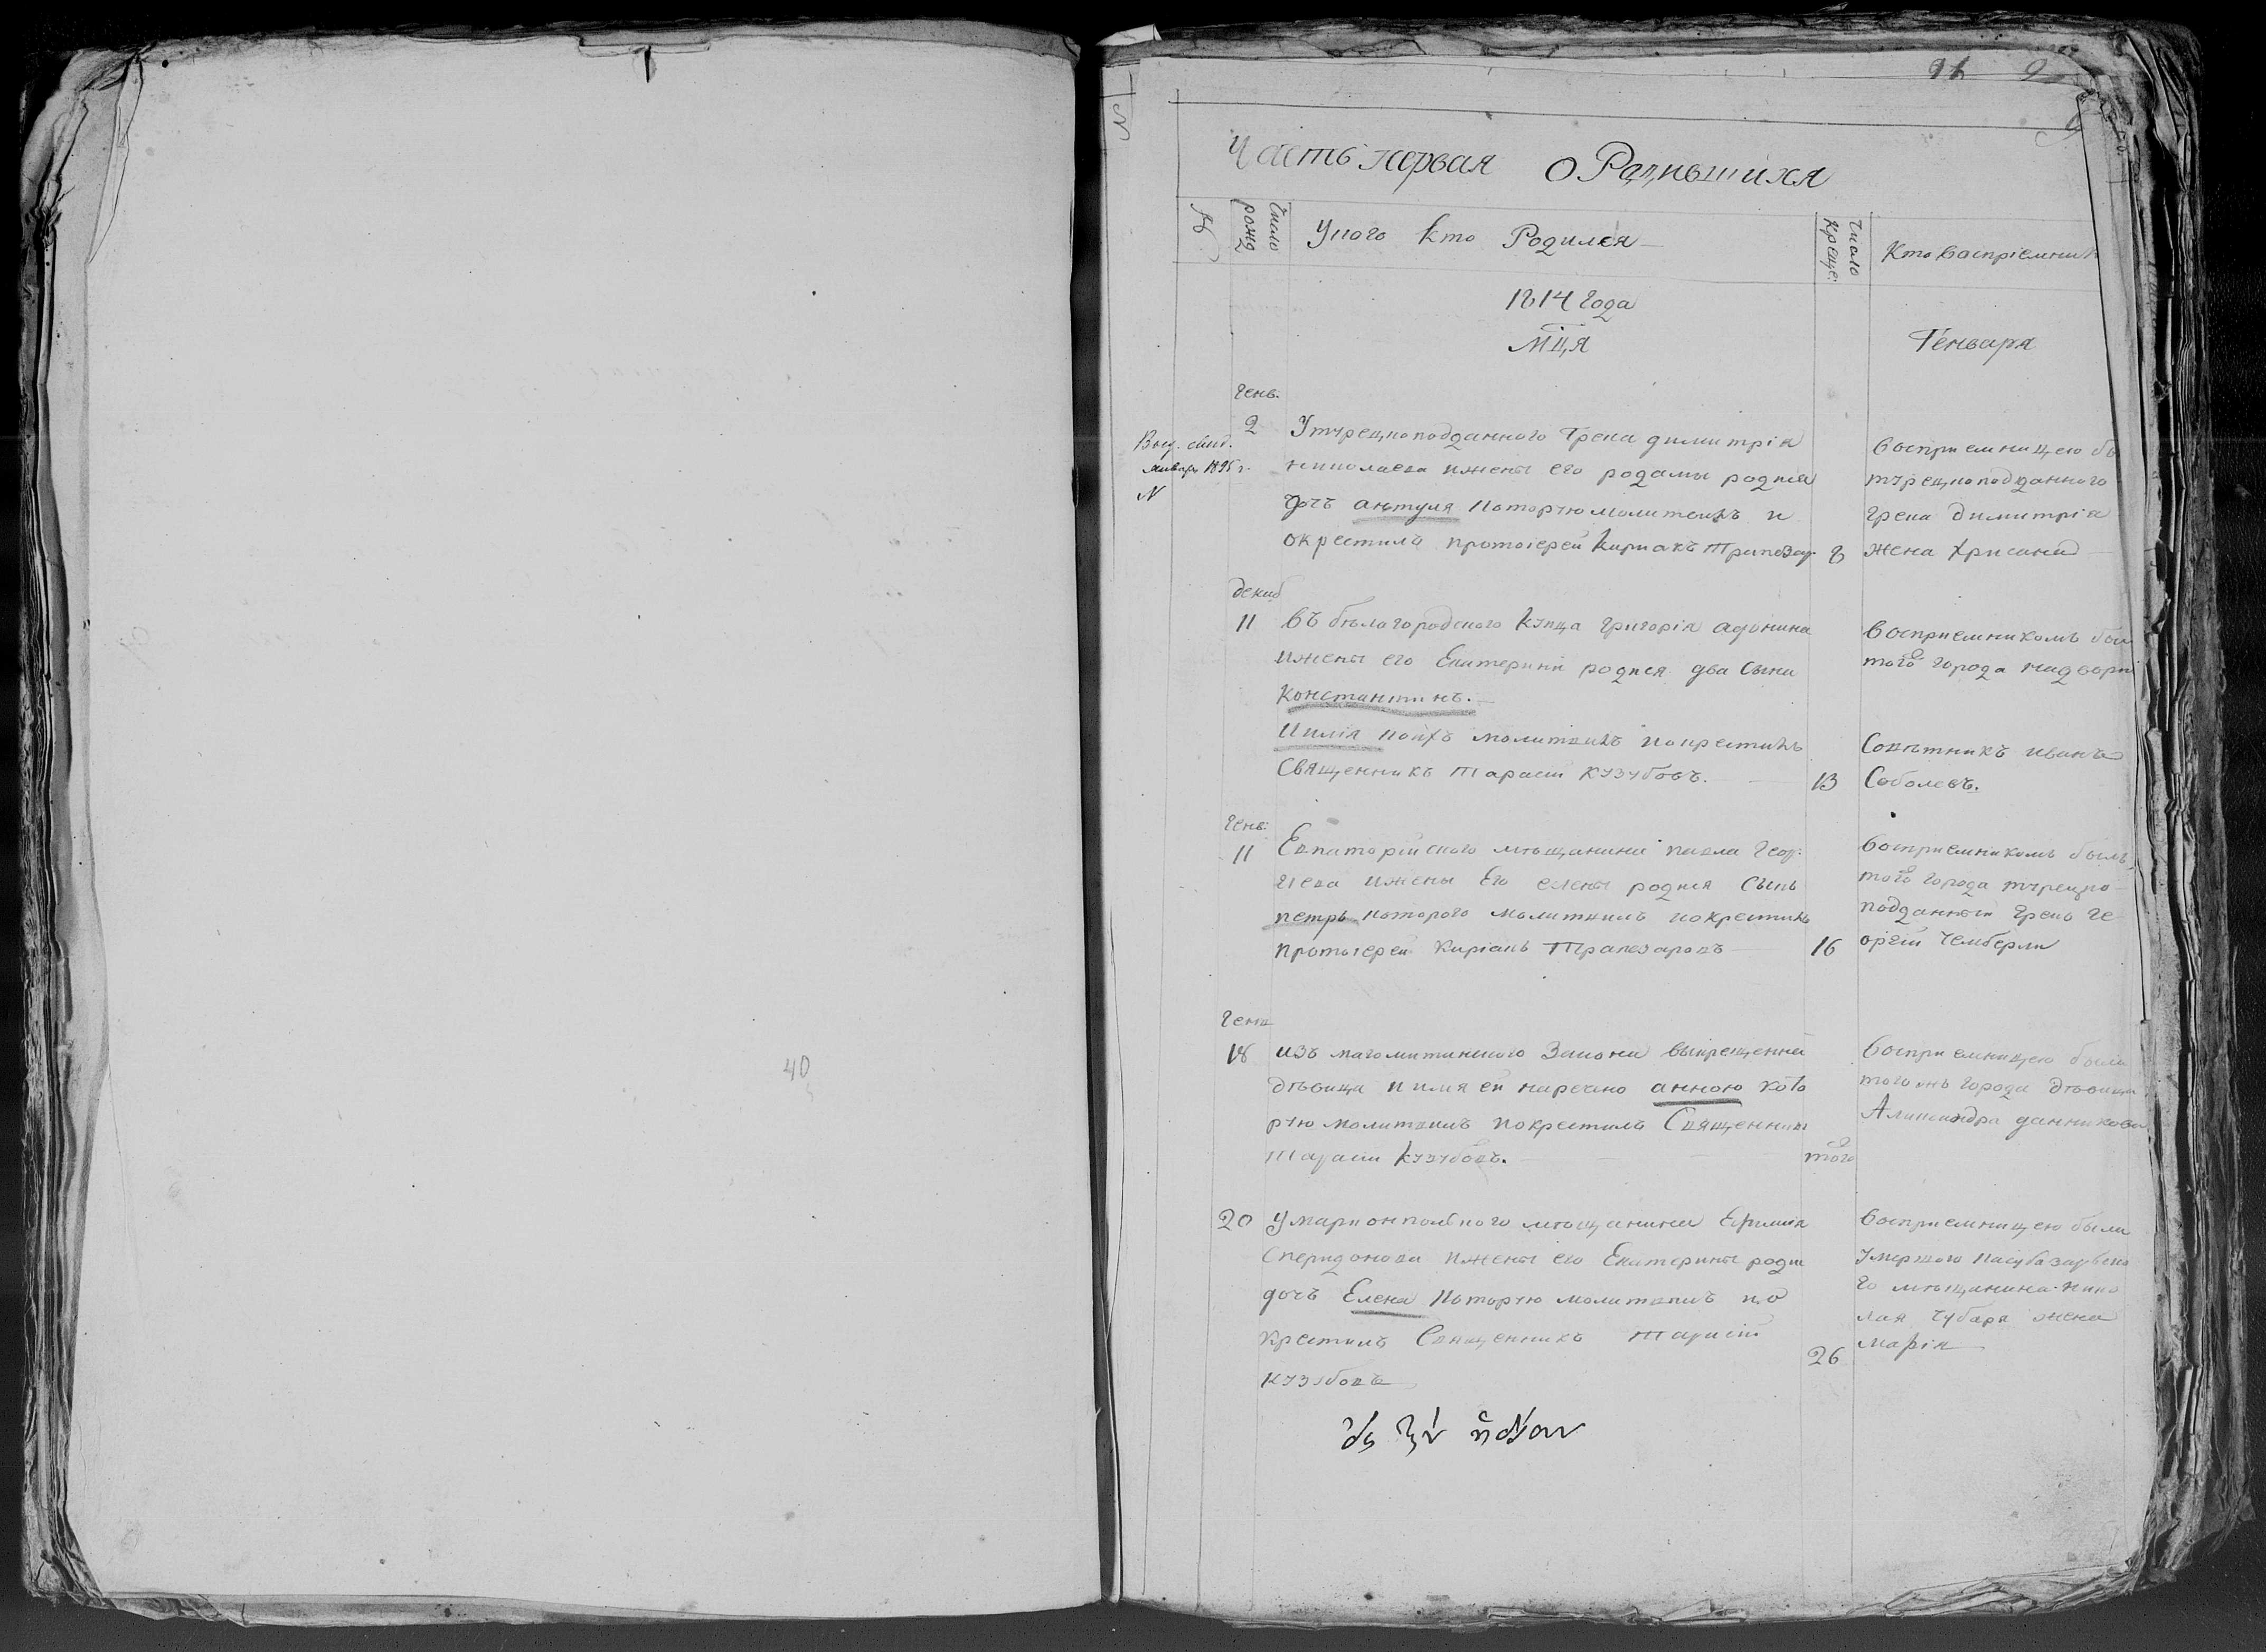 40
Часть первая о Родившихся
№
Число рожд
У кого кто Родился
Число креще:
Кто воспріемник
1814 года
Мця
Генваря
Генв.
2
Утурецкоподданного Грека димитрія
николаева ижены его родамы родися
дочь антуля которую молитвилъ и
окрестилъ протоіерей Киріакъ Трапезар
8
Выд. свид.
январ 1895 г.
N
восприемницею бы
турецкоподданного
грека Димитрія
жена Хрисана
Декаб
11
въ бѣлогородского купца григорія афонина
ижены его Екатерини родися два сына
Константинъ.
Иилія коихъ молитвилъ иокрестилъ
Священникъ тарасій кузубовъ.
13
восприемникомъ был
того города надворн
Совѣтникъ иванъ
Соболевъ.
Генв:
11
Евпаторійского мѣщанина павла Геор:
гіева ижены Его елены родися Сынъ
петръ которого молитвилъ иокрестилъ
протоіерей Киріакъ Трапезаровъ
16
восприемникомъ былъ
того города турецко
подданный грекъ ге
оргій Чемберли
Генв
18
изъ магомитанского Закона выкрещенна
дѣвица и имя ей наречно анною кото
рую молитвилъ иокрестилъ Священник
тарасій кузубовъ.
того
восприемницею была
того города дѣвица
Александра данникова
20
У мариопольного мѣщанина Ефимія
Сперидонова ижены его Екатерины роди
дочь Елена которую молитвилъ ио
крестилъ Священникъ тарасій
кузубовъ
26
восприемницею была
умершого карасубазарвско
го мѣщанина нико
лая чубаря жена
марія